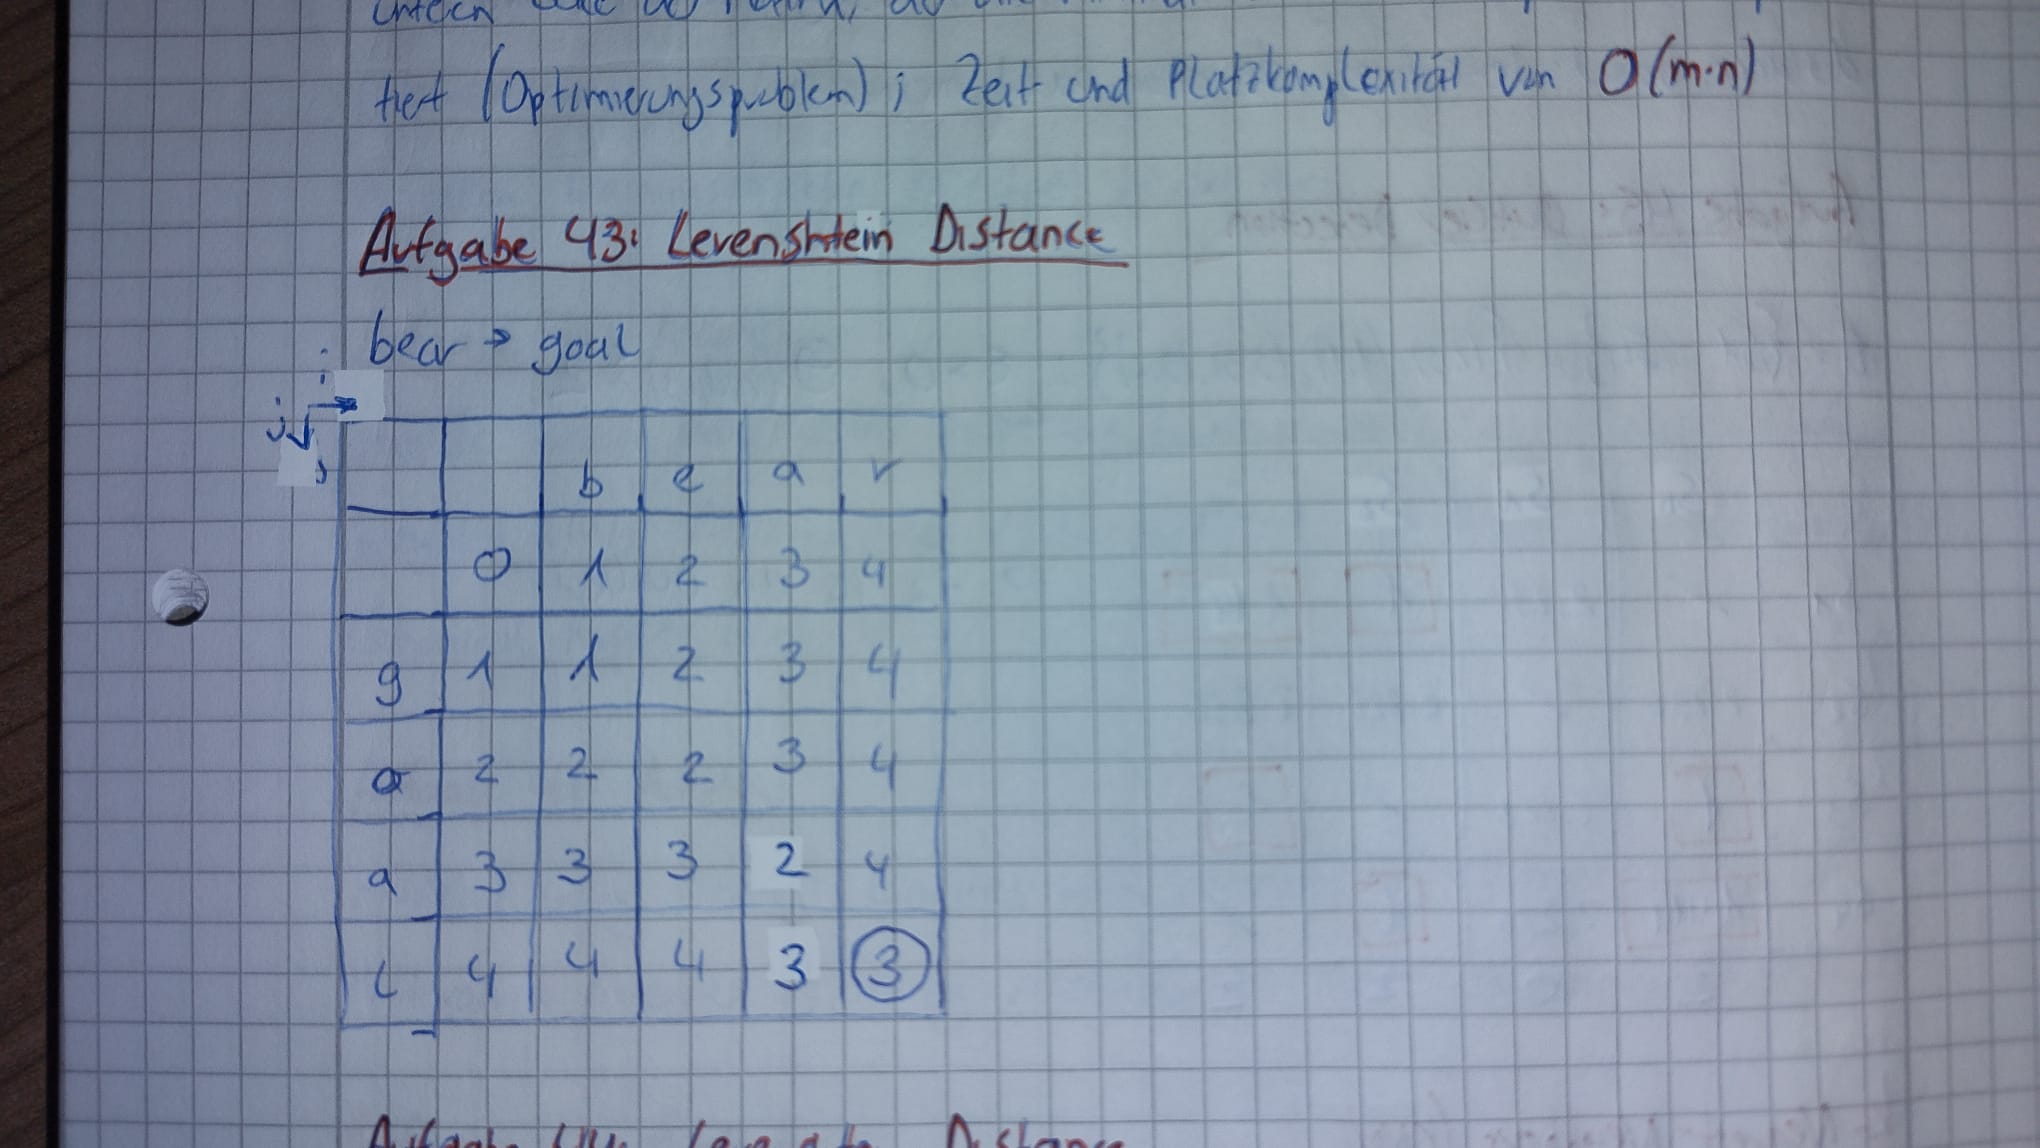 tiert (Optimierungsproblem); Zeit und Platzkomplexität von O(m·n)
Aufgabe 43: Levenshtein Distance
bear → goal
i
j
b e a r
0 1 2 3 4
g 1 1 2 3 4
o 2 2 2 3 4
a 3 3 3 2 4
l 4 4 4 3 3
Distance